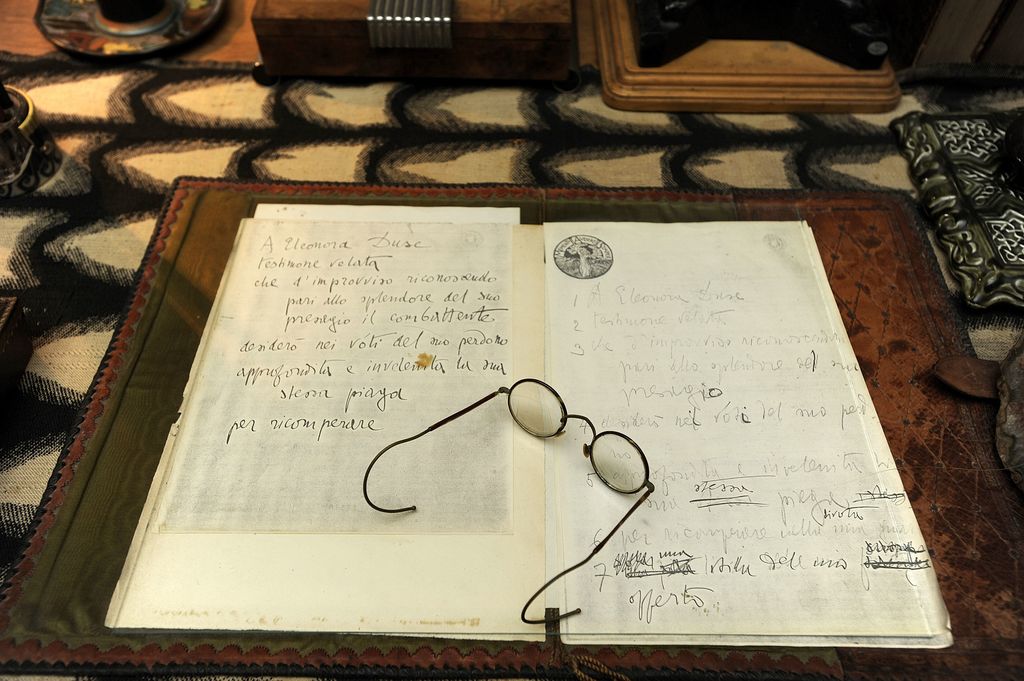 A Eleonora Duse
testimone velata
che d'improvviso riconoscendo
pari allo splendore del suo
presagio il combattente
desiderò nei voti del suo perdono
approfondita e invelenita la sua
stessa piaga
per ricomperare
1 A Eleonora Duse
2 testimone velata
3 che d'improvviso riconoscendo
pari allo splendore del suo
presagio
4 desiderò nei voti del suo
5 approfondita e invelenita la
sua stessa piaga
6 per ricomperare nella mia
7 stilla
offerto